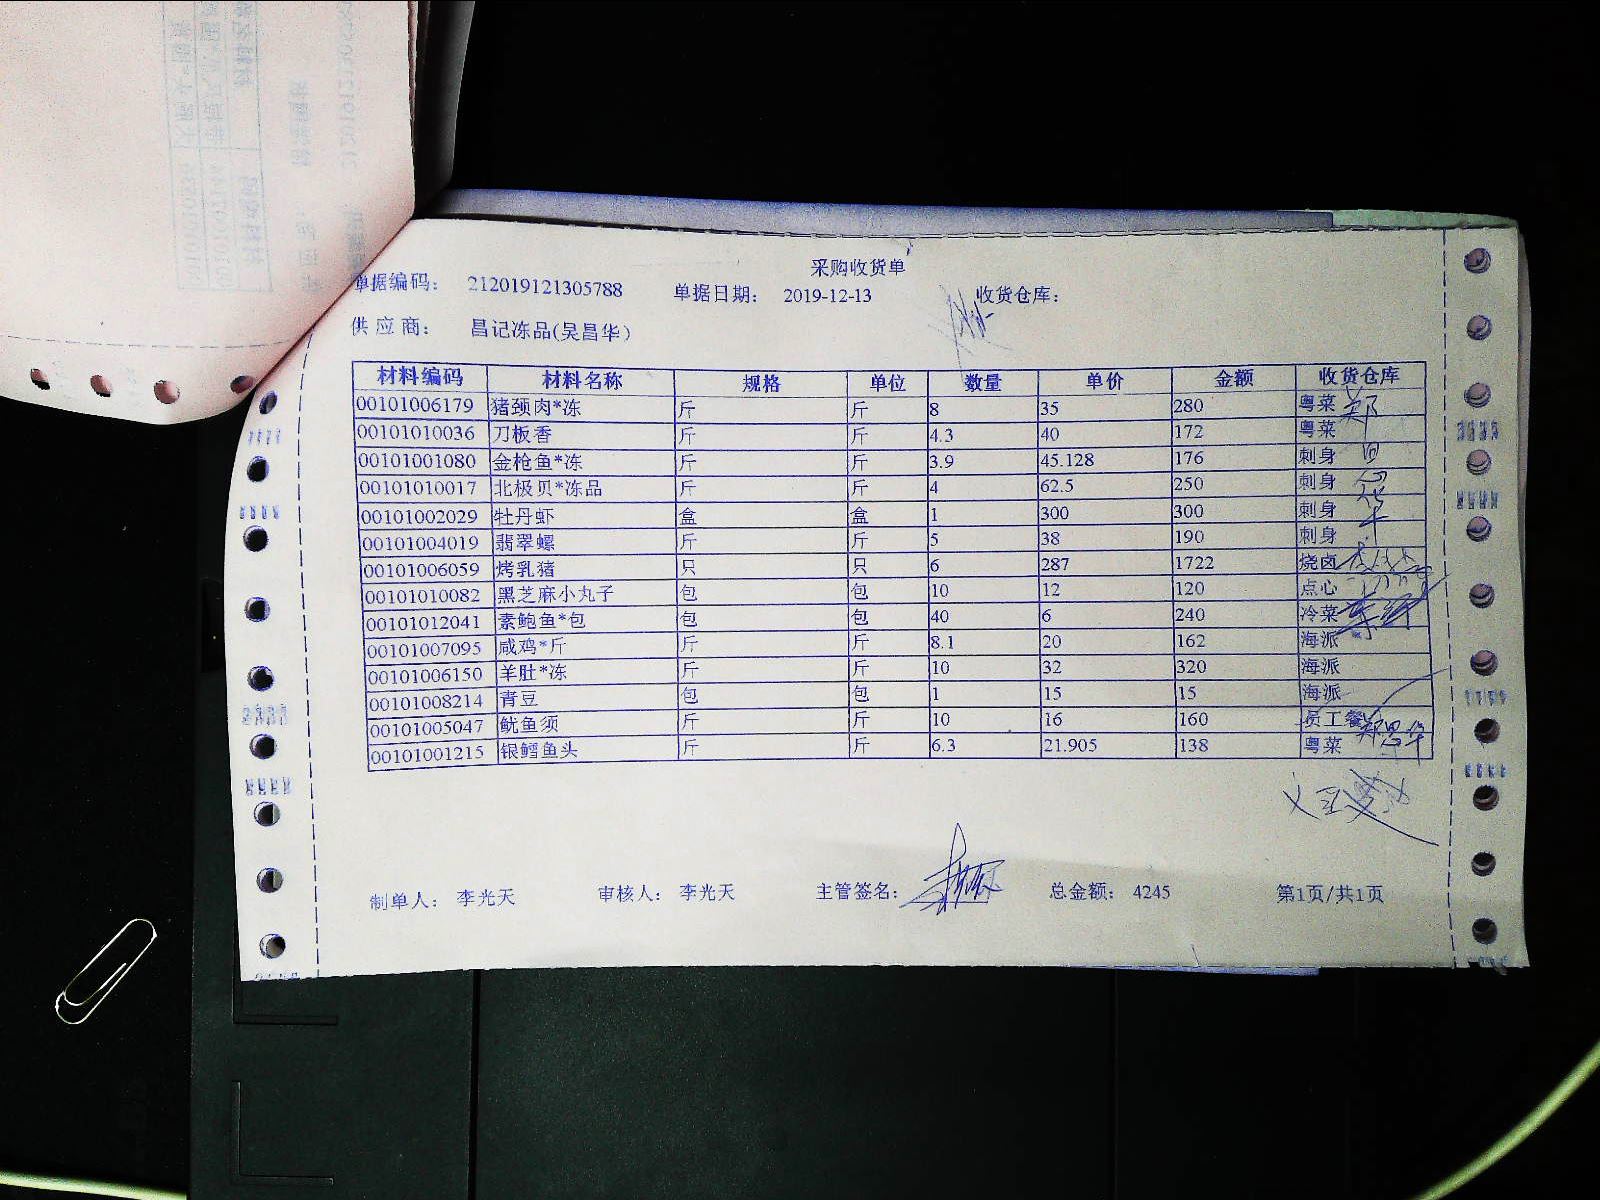 采购收货单
单据编码： 212019121305788 单据日期： 2019-12-13 收货仓库：
供应商： 昌记冻品(吴昌华)
材料编码 材料名称 规格 单位 数量 单价 金额 收货仓库
00101006179 猪颈肉*冻 斤 斤 8 35 280 粤菜
00101010036 刀板香 斤 斤 4.3 40 172 粤菜
00101001080 金枪鱼*冻 斤 斤 3.9 45.128 176 刺身
00101010017 北极贝*冻品 斤 斤 4 62.5 250 刺身
00101002029 牡丹虾 盒 盒 1 300 300 刺身
00101004019 翡翠螺 斤 斤 5 38 190 刺身
00101006059 烤乳猪 只 只 6 287 1722 烧卤
00101010082 黑芝麻小丸子 包 包 10 12 120 点心
00101012041 素鲍鱼*包 包 包 40 6 240 冷菜
00101007095 咸鸡*斤 斤 斤 8.1 20 162 海派
00101006150 羊肚*冻 斤 斤 10 32 320 海派
00101008214 青豆 包 包 1 15 15 海派
00101005047 鱿鱼须 斤 斤 10 16 160 员工餐
00101001215 银鳕鱼头 斤 斤 6.3 21.905 138 粤菜
制单人： 李光天 审核人： 李光天 主管签名： 总金额： 4245 第1页/共1页